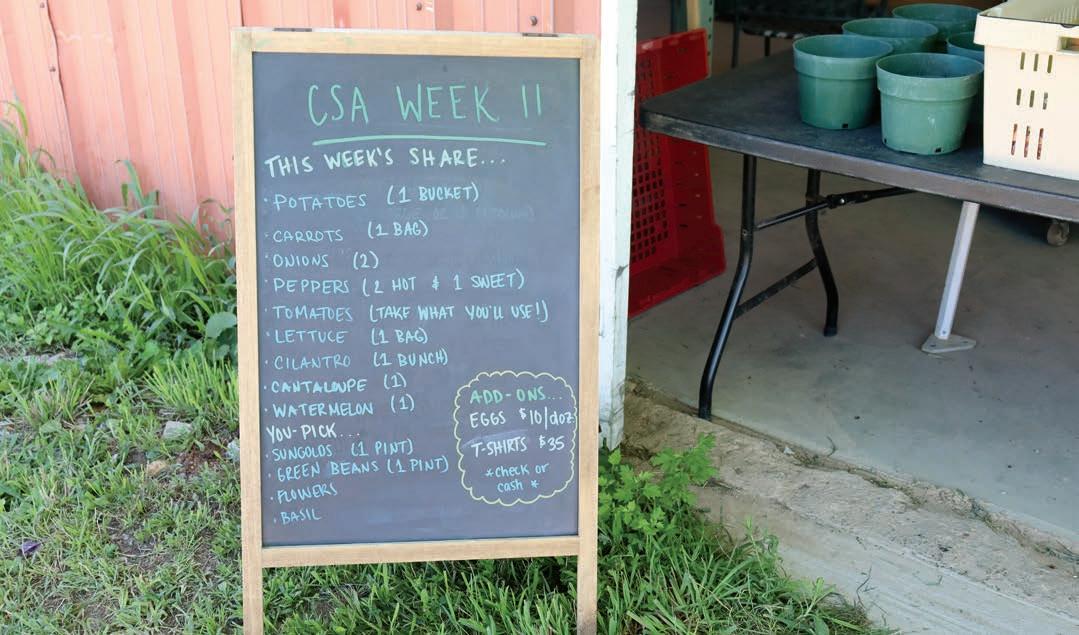 CSA WEEK 11
THIS WEEK'S SHARE...
• POTATOES (1 BUCKET)
• CARROTS (1 BAG)
• ONIONS (2)
• PEPPERS (2 HOT & 1 SWEET)
• TOMATOES (TAKE WHAT YOU'LL USE!)
• LETTUCE (1 BAG)
• CILANTRO (1 BUNCH)
• CANTALOUPE (1)
• WATERMELON (1)
YOU-PICK...
• SUNGOLDS (1 PINT)
• GREEN BEANS (1 PINT)
• FLOWERS
• BASIL
ADD-ONS...
EGGS $10/doz
T-SHIRTS $35
*check or
cash *